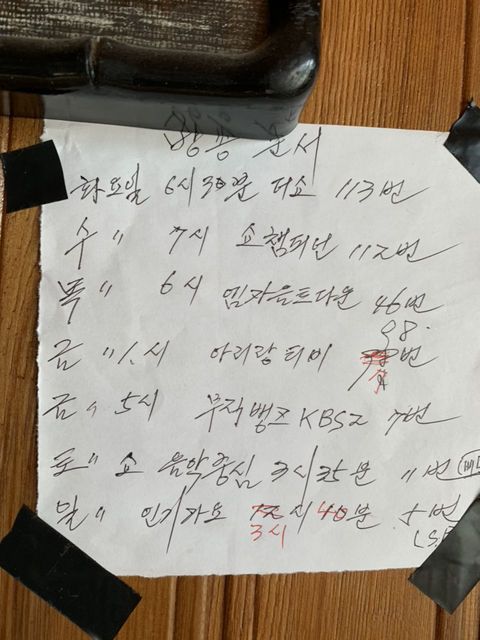 방송 순서
화요일 6시30분 더쇼 113번
수〃 7시 쇼챔피언 112번
목〃 6시 엠카운트다운 46번
98.
금〃 1.시 아리랑티비 번
금〃 5시 뮤직뱅크 KBS2 7번
토〃 쇼 음악중심 3시35분 11번
일〃 인기가요 시 40분 5번
3시